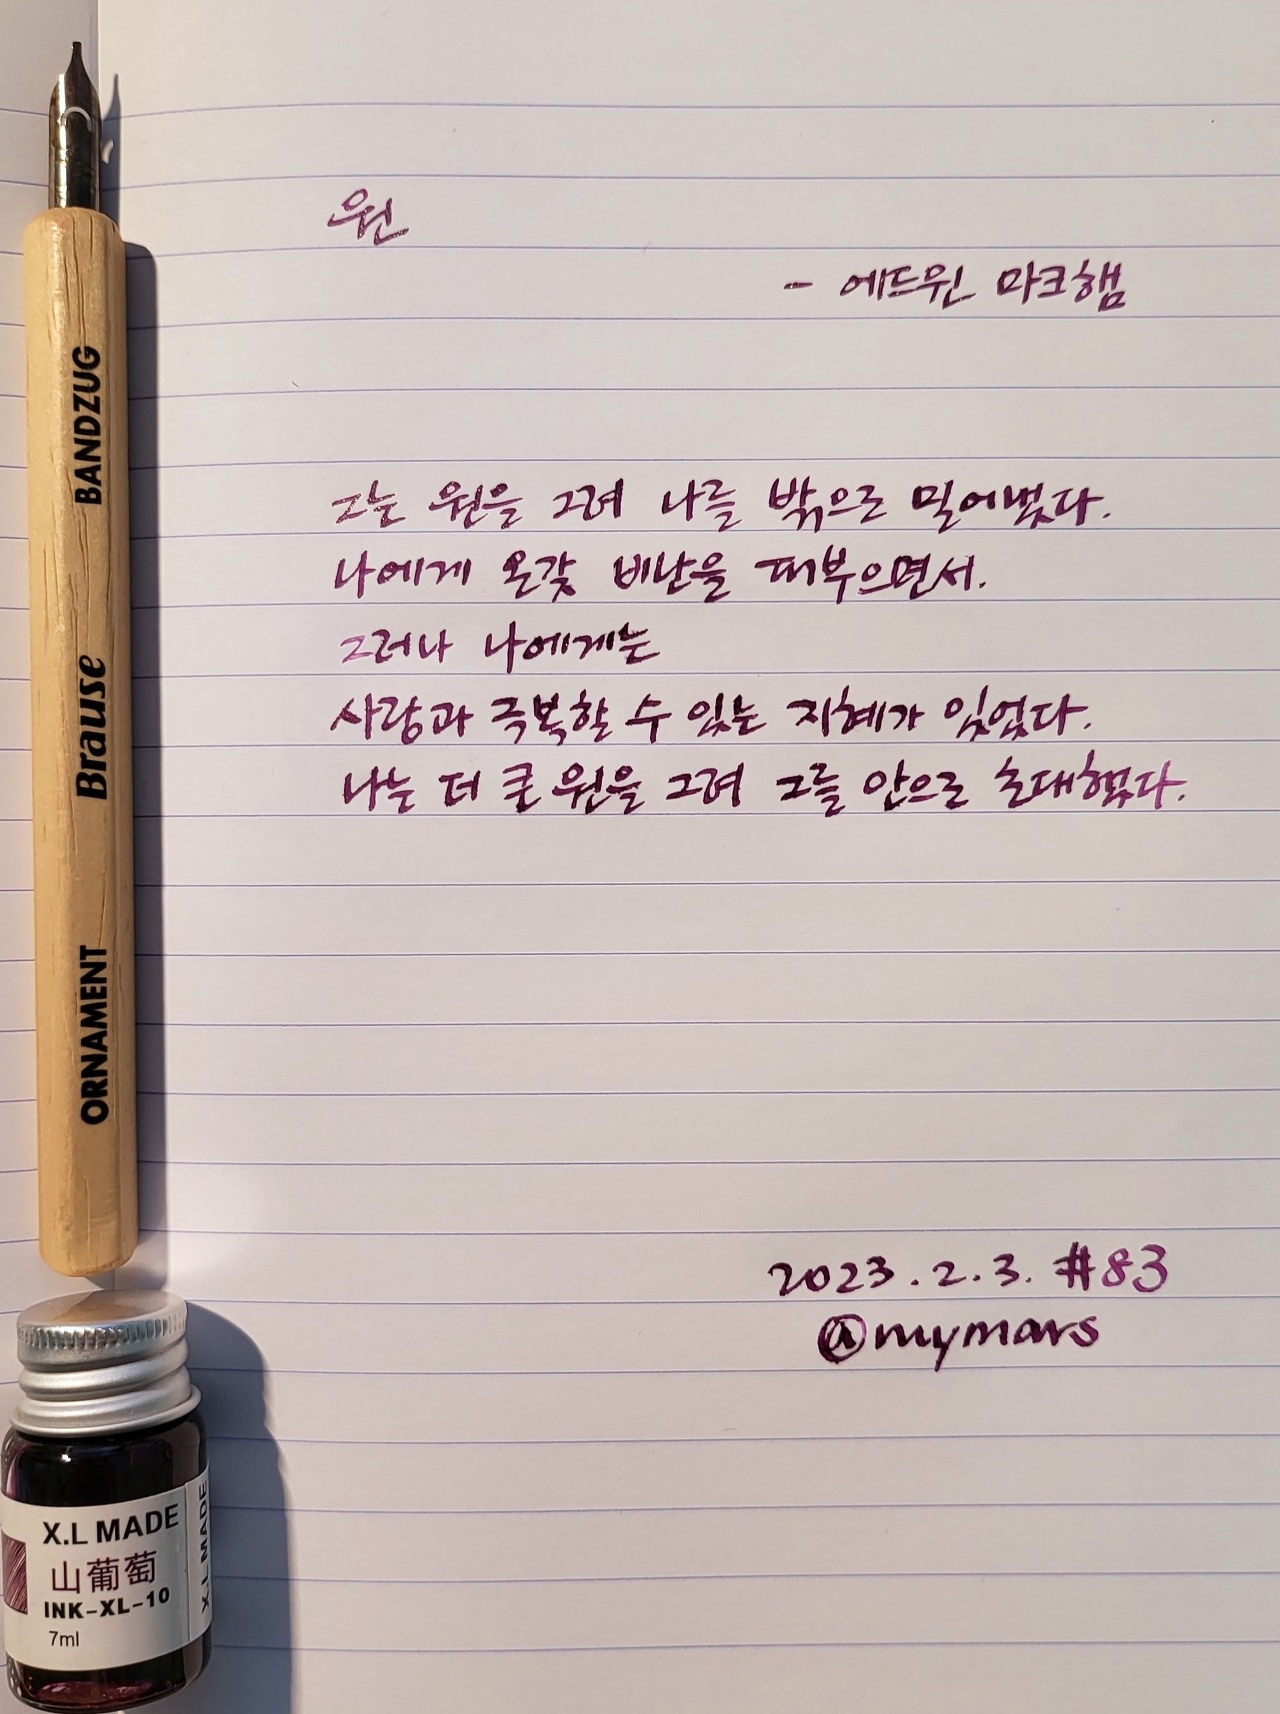 원
- 에드윈 마크햄
그는 원을 그려 나를 밖으로 밀어냈다.
나에게 온갖 비난을 퍼부으면서.
그러나 나에게는
사랑과 극복할 수 있는 지혜가 있었다.
나는 더 큰 원을 그려 그를 안으로 초대했다.
2023.2.3. #83
@mymars
BANDZUG
Brause
ORNAMENT
X.L MADE
山葡萄
INK-XL-10
7ml
X.L MADE